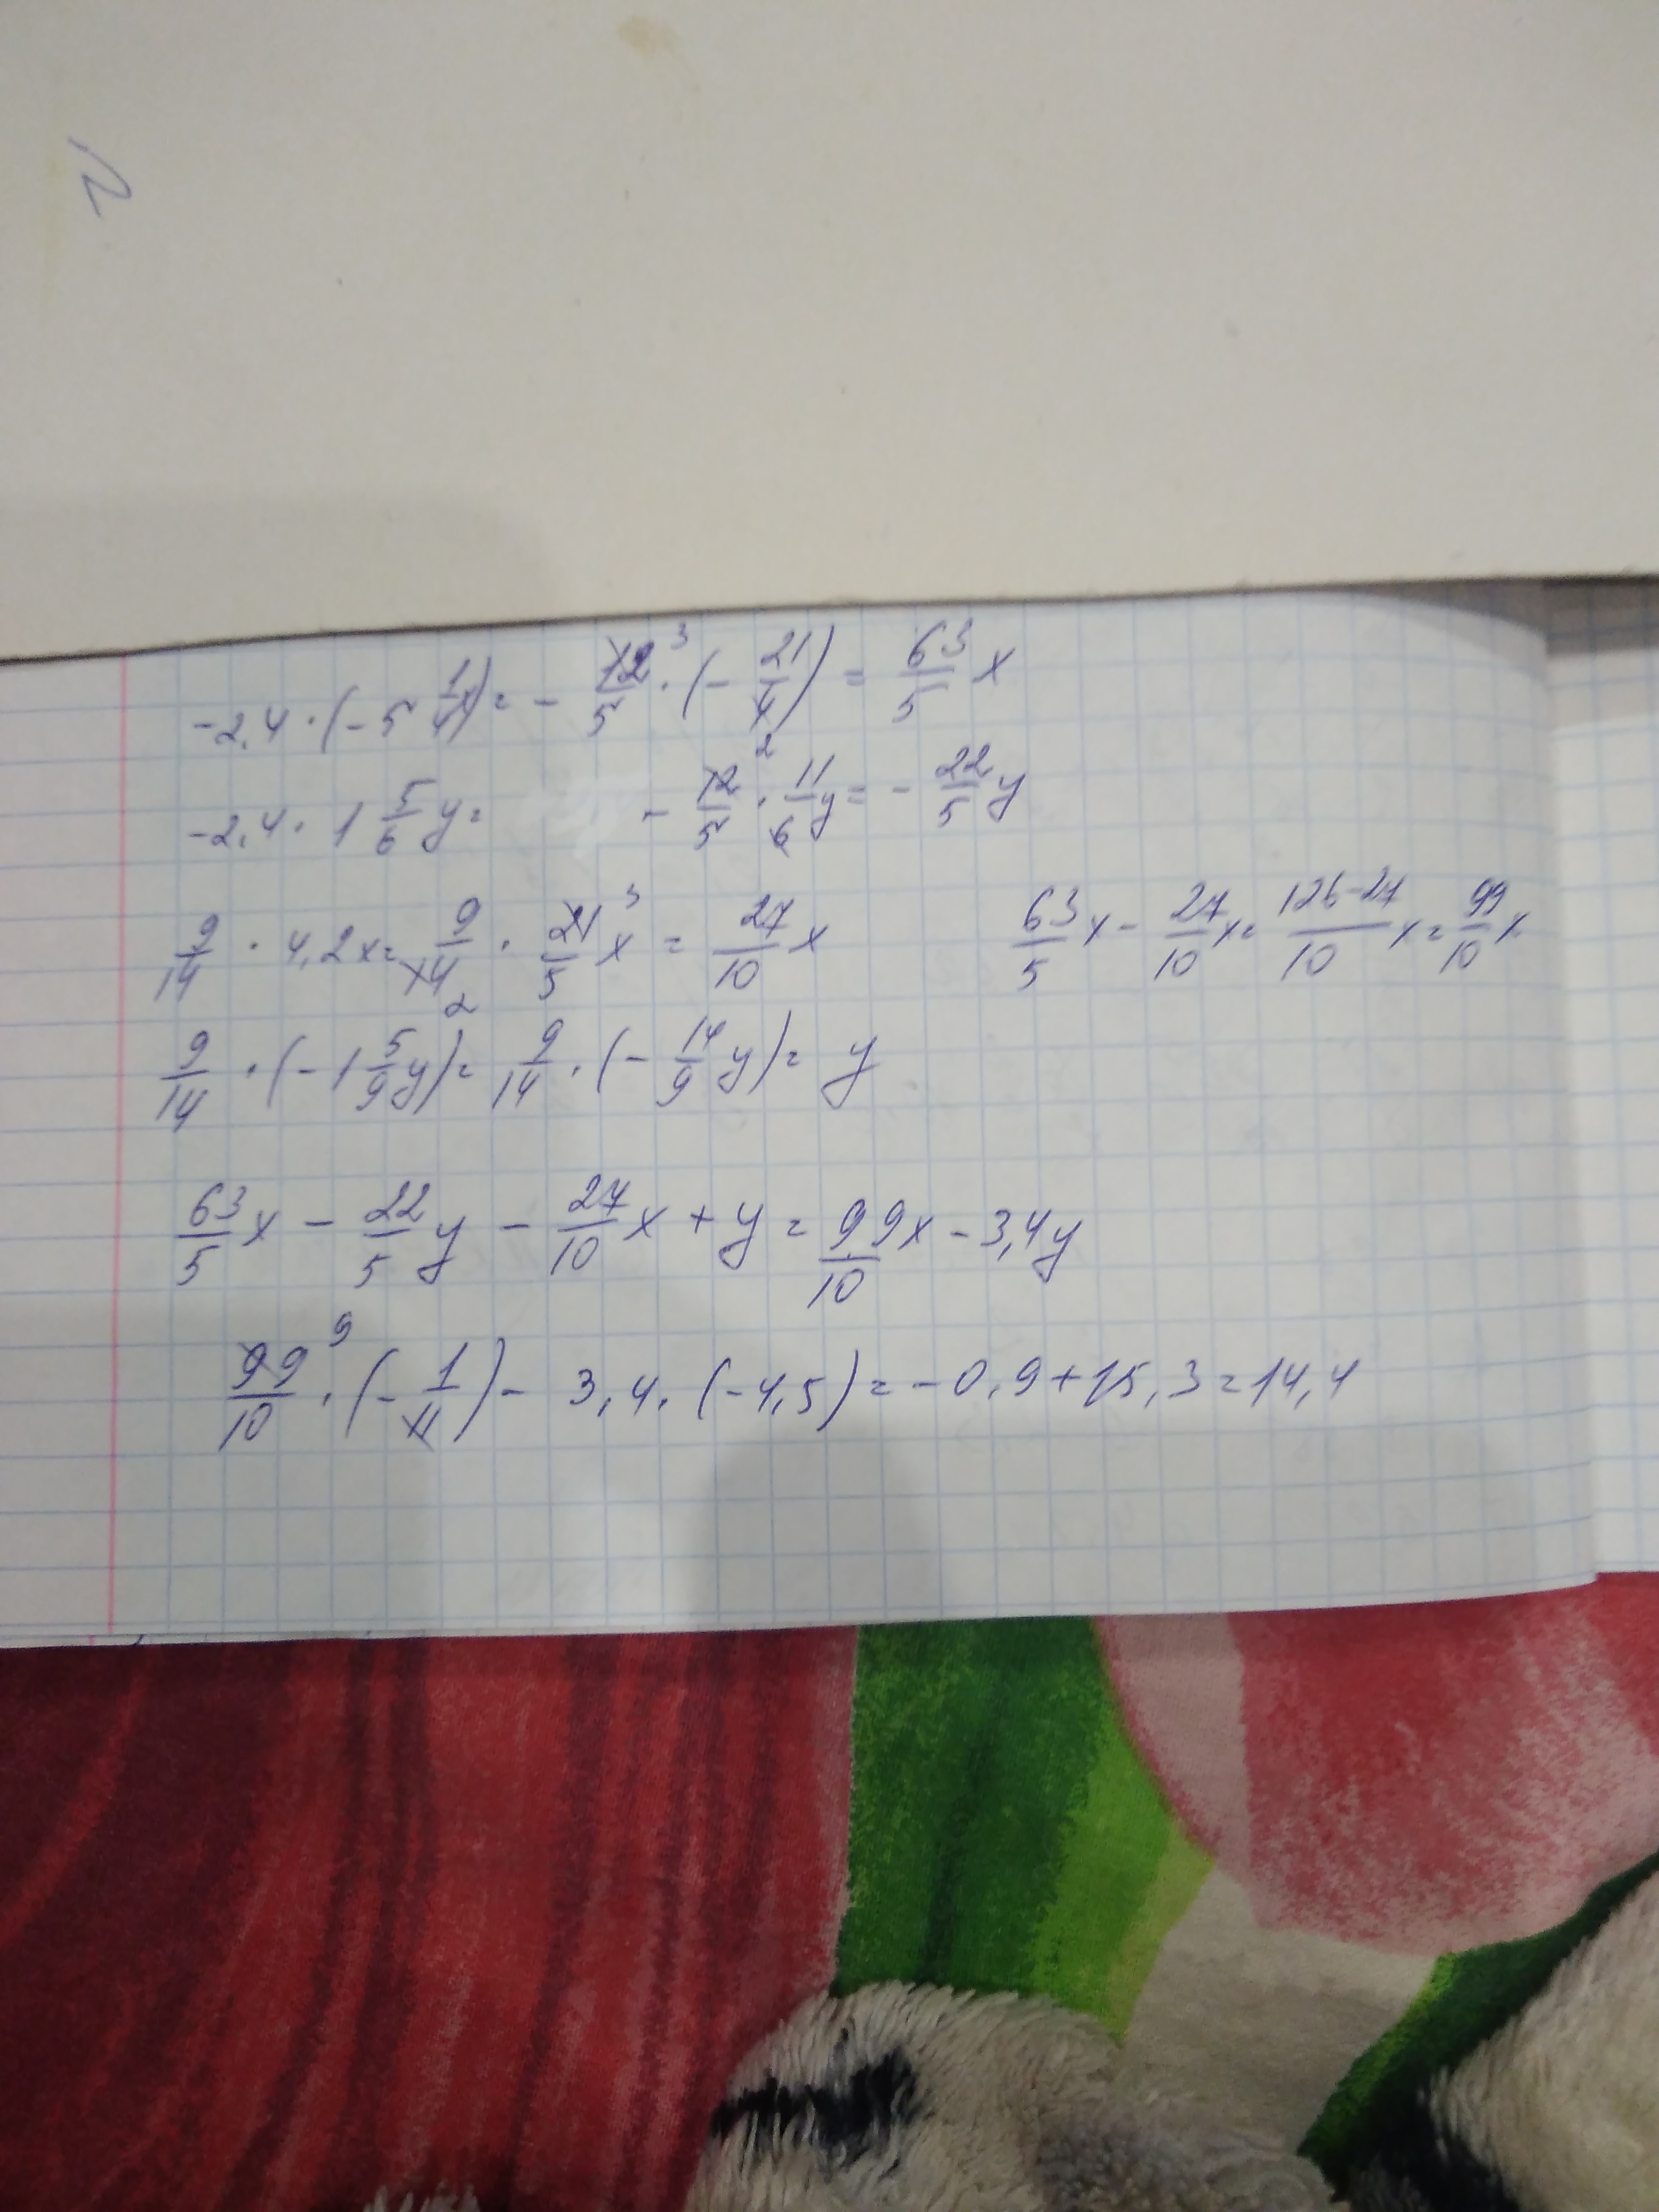 2
-2,4 · (-5 1/4x) = - 12/5 ³ · (- 21/4) = 63/5 x
-2,4 · 1 5/6 y = - 12/5 ² · 11/6 y = - 22/5 y
9/14 · 4,2x = 9/14 ₂ · 21/5 ³ x = 27/10 x
63/5 x - 27/10 x = 126-27/10 x = 99/10 x
9/14 · (-1 5/9 y) = 9/14 · (- 14/9 y) = y
63/5 x - 22/5 y - 27/10 x + y = 99/10 x - 3,4y
99/10 ⁹ · (- 1/11) - 3,4 · (-4,5) = -0,9 + 15,3 = 14,4